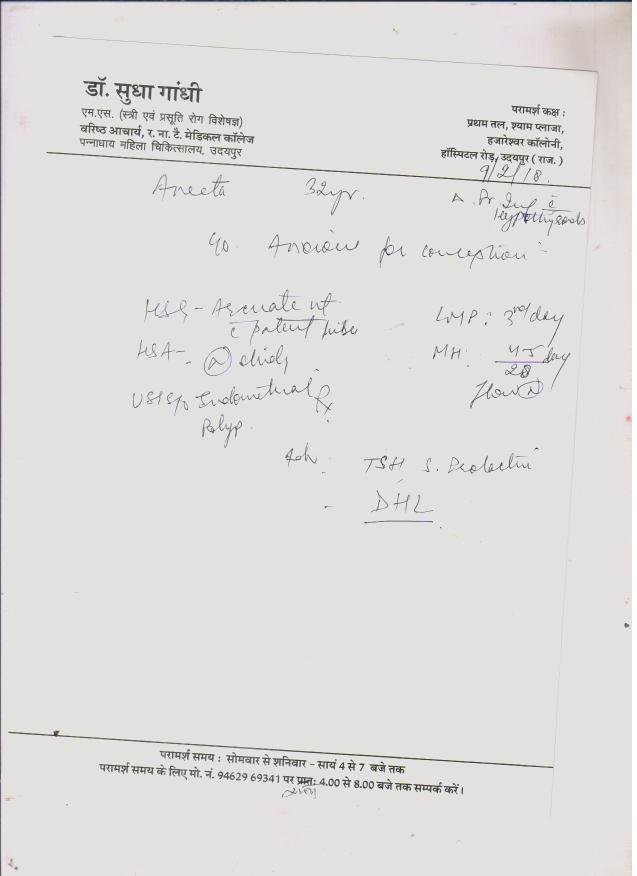 डॉ. सुधा गांधी
एम.एस. (स्त्री एवं प्रसूति रोग विशेषज्ञ)
वरिष्ठ आचार्य, र. ना. टै. मेडिकल कॉलेज
पन्नाधाय महिला चिकित्सालय, उदयपुर
परामर्श कक्ष :
प्रथम तल, श्याम प्लाजा,
हजारेश्वर कॉलोनी,
हॉस्पिटल रोड़, उदयपुर ( राज. )
9/2/18.
Aneeta 32yr.
Δ. Pr. Inf c̄
c/o. Anxious for conception
HSG - Arcuate ut
c̄ patent tubes
LMP: 3rd day
HSA - (N)
MH: 4-5 day
28
flow (N)
USG S/o Endometrial
Polyp.
Adv. TSH S. Prolactin
- DHL
परामर्श समय : सोमवार से शनिवार - सायं 4 से 7 बजे तक
परामर्श समय के लिए मो. नं. 94629 69341 पर प्रातः 4.00 से 8.00 बजे तक सम्पर्क करें।